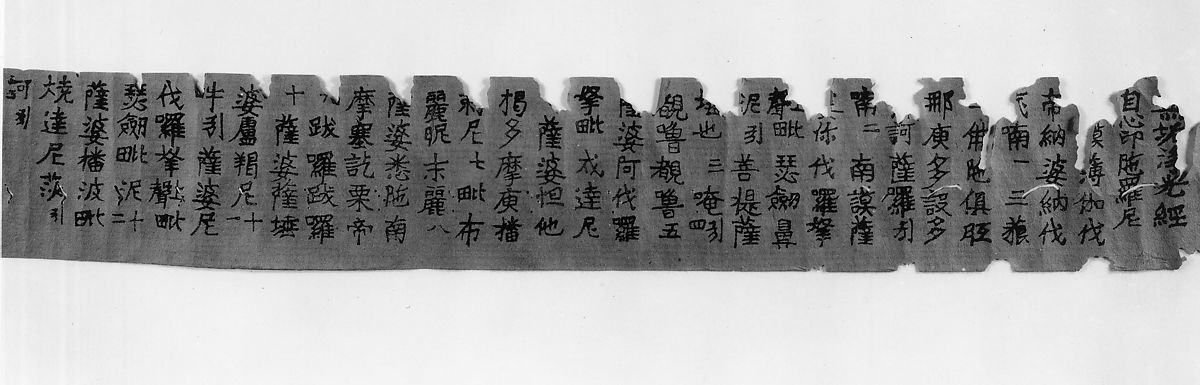 淨光經
自心印陁羅尼
謨薄伽伐
帝納婆納伐
喃一三藐
佛陁俱胝
那庾多設多
訶薩羅引
喃二南謨薩
你伐羅拏
聲毗瑟劒鼻
泥引菩提薩
埵也三唵四引
覩嚕覩嚕五
薩婆阿伐羅
拏毗戍達尼
薩婆怛他
揭多摩庾播
剌尼七毗布
麗昵末麗八
薩婆悉陁南
摩塞訖栗帝
九跋囉跋囉
十薩婆薩埵
婆盧羯尼十一
牛引薩婆尼
伐囉拏聲毗
瑟劒毗泥十二
薩婆播波毗
燒達尼莎引
訶引